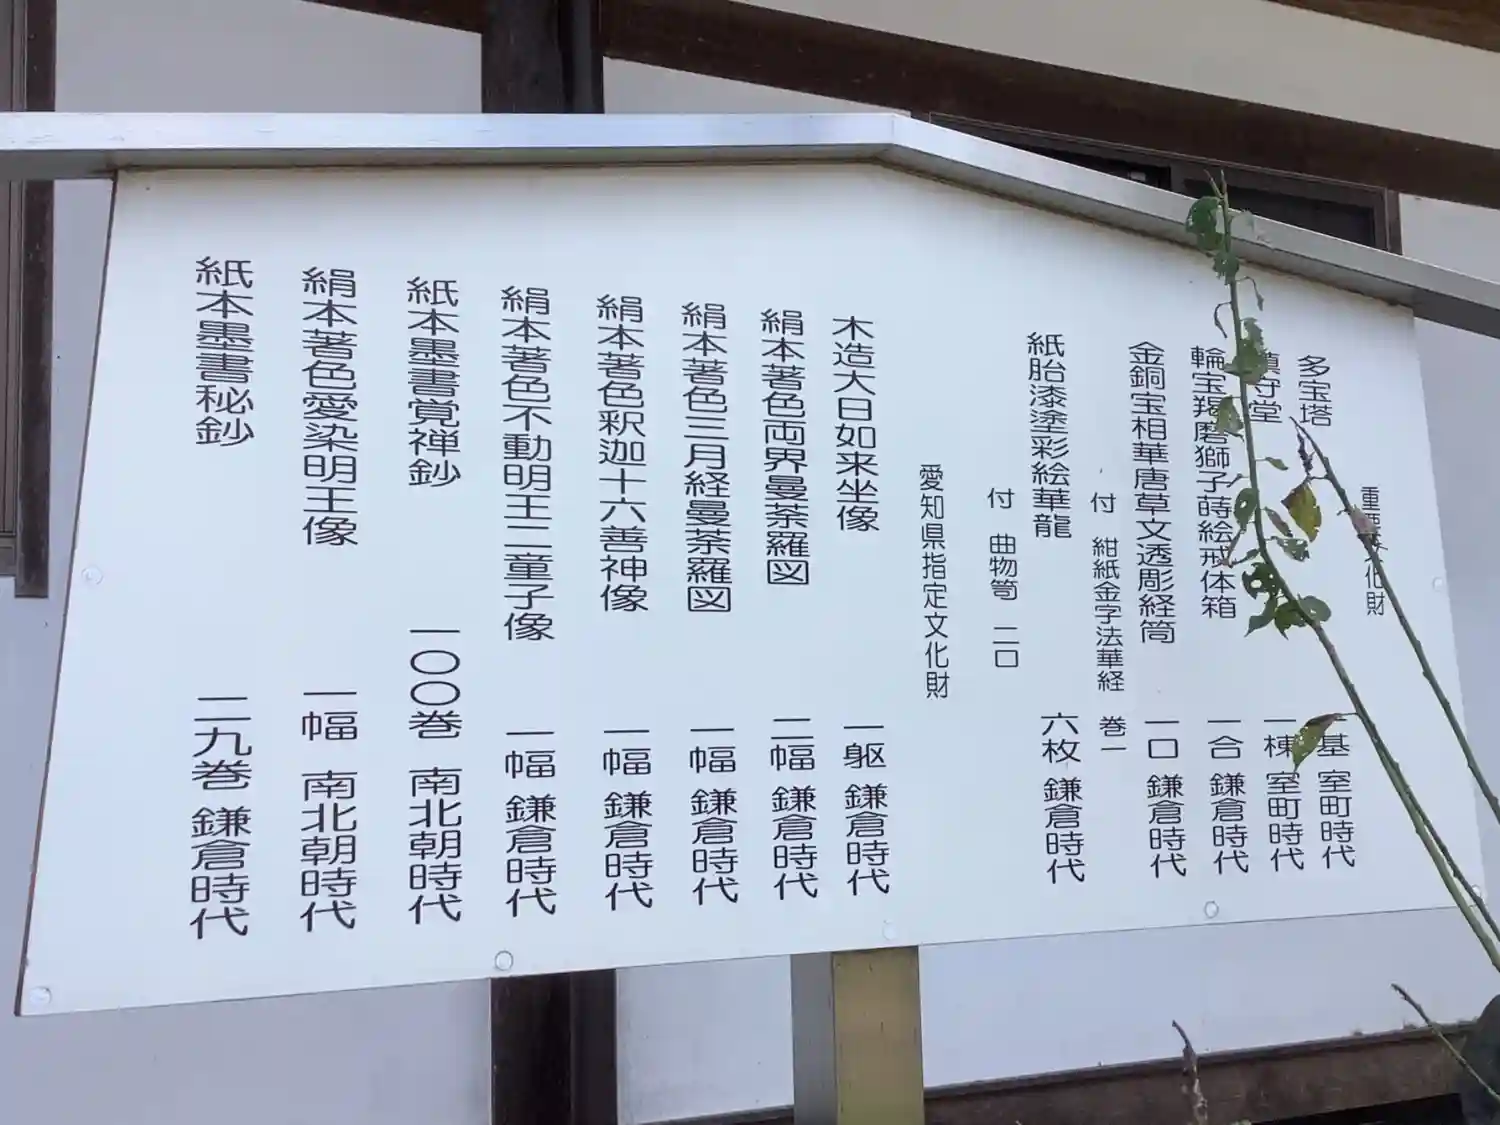 重要文化財
多宝塔 基 室町時代
鎮守堂 一棟 室町時代
輪宝羯磨獅子蒔絵戒体箱 一合 鎌倉時代
金銅宝相華唐草文透彫経筒 一口 鎌倉時代
付 紺紙金字法華経 巻一
紙胎漆塗彩絵華籠 六枚 鎌倉時代
付 曲物笥 二口
愛知県指定文化財
木造大日如来坐像 一躯 鎌倉時代
絹本著色両界曼荼羅図 二幅 鎌倉時代
絹本著色三月経曼荼羅図 一幅 鎌倉時代
絹本著色釈迦十六善神像 一幅 鎌倉時代
絹本著色不動明王二童子像 一幅 鎌倉時代
紙本墨書覚禅鈔 一〇〇巻 南北朝時代
絹本著色愛染明王像 一幅 南北朝時代
紙本墨書秘鈔 二九巻 鎌倉時代